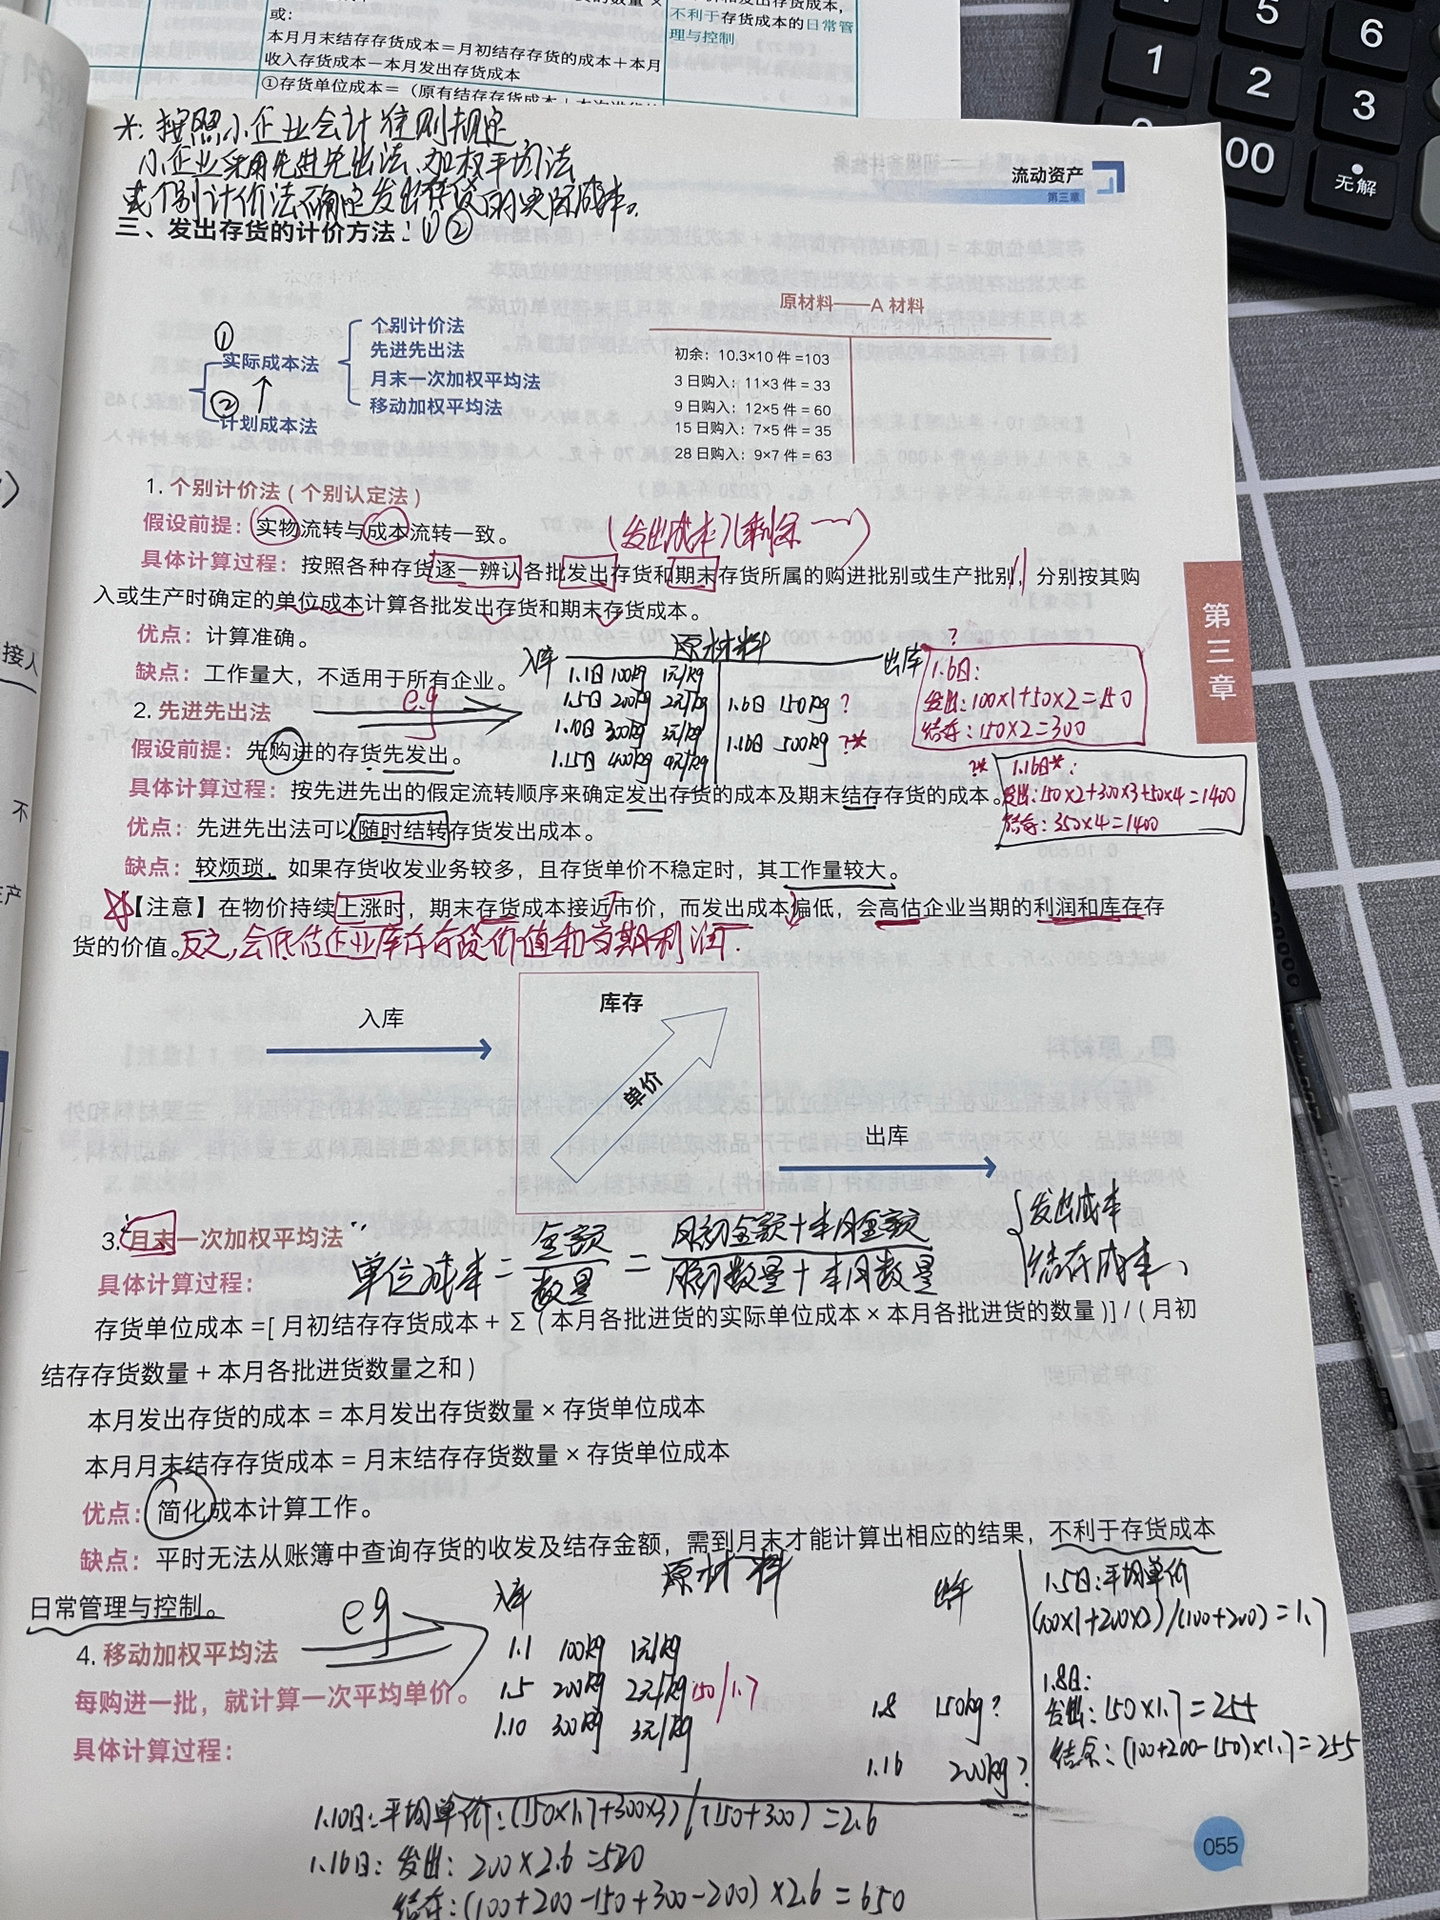 或：
本月月末结存存货成本＝月初结存存货的成本＋本月
收入存货成本－本月发出存货成本
不利于存货成本的日常管
理与控制
5
6
1
2
3
00
无解
*：按照小企业会计准则规定
小企业采用先进先出法、加权平均法
或个别计价法确定发出存货的实际成本。
流动资产
第三章
三、发出存货的计价方法：①②
原材料——A 材料
①
实际成本法
②
计划成本法
个别计价法
先进先出法
月末一次加权平均法
移动加权平均法
初余：10.3×10 件 =103
3 日购入：11×3 件 = 33
9 日购入：12×5 件 = 60
15 日购入：7×5 件 = 35
28 日购入：9×7 件 = 63
1. 个别计价法 ( 个别认定法 )
假设前提：实物流转与成本流转一致。
具体计算过程：按照各种存货逐一辨认各批发出存货和期末存货所属的购进批别或生产批别，分别按其购
入或生产时确定的单位成本计算各批发出存货和期末存货成本。
优点：计算准确。
缺点：工作量大，不适用于所有企业。
入库 原材料 出库
1.1日 100kg 1元/kg
1.5日 200kg 2元/kg 1.6日 150kg ?
1.10日 300kg 3元/kg
1.15日 400kg 4元/kg 1.16日 500kg ?*
?
1.6日：
发出：100×1+50×2=150
结存：150×2=300
?* 1.16日*：
发出：150×2+300×3+50×4=1400
结存：350×4=1400
2. 先进先出法 eg
假设前提：先购进的存货先发出。
具体计算过程：按先进先出的假定流转顺序来确定发出存货的成本及期末结存存货的成本。
优点：先进先出法可以随时结转存货发出成本。
缺点：较烦琐，如果存货收发业务较多，且存货单价不稳定时，其工作量较大。
【注意】在物价持续上涨时，期末存货成本接近市价，而发出成本偏低，会高估企业当期的利润和库存存
货的价值。反之，会低估企业库存存货价值和当期利润.
库存
入库
单价
出库
3. 月末一次加权平均法
单位成本 = 金额/数量 = 月初金额+本月金额/月初数量+本月数量
发出成本
结存成本
具体计算过程：
存货单位成本 =[ 月初结存存货成本 + Σ ( 本月各批进货的实际单位成本 × 本月各批进货的数量 )] / ( 月初
结存存货数量 + 本月各批进货数量之和 )
本月发出存货的成本 = 本月发出存货数量 × 存货单位成本
本月月末结存存货成本 = 月末结存存货数量 × 存货单位成本
优点：简化成本计算工作。
缺点：平时无法从账簿中查询存货的收发及结存金额，需到月末才能计算出相应的结果，不利于存货成本
日常管理与控制。
4. 移动加权平均法 eg
每购进一批，就计算一次平均单价。
具体计算过程：
入库 原材料 出库
1.1 100kg 1元/kg
1.5 200kg 2元/kg 150/1.7
1.10 300kg 3元/kg
1.8 150kg ?
1.16 200kg ?
1.5日：平均单价
(100×1+200×2)/(100+200)=1.7
1.8日：
发出：150×1.7=255
结余：(100+200-150)×1.7=255
1.10日：平均单价：(150×1.7+300×3)/(150+300)=2.6
1.16日：发出：200×2.6=520
结存：(100+200-150+300-200)×2.6=650
第三章
055